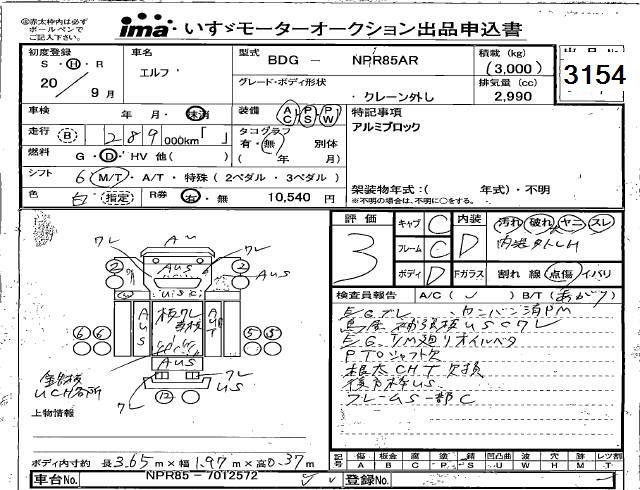 ㊟赤太枠内は必ず
ボールペンで
ご記入下さい。
ima いすゞモーターオークション出品申込書
初度登録 S・H・R 20 / 9月
車名 エルフ
型式 BDG － NPR85AR
グレード・ボディ形状 ・クレーン外し
積載 (kg) (3,000)
排気量 (cc) 2,990
出品No.
3154
車検 年 月・抹消
装備 AC・PS・PW
特記事項
アルミブロック
走行 B 289 000km「 」
タコグラフ 有・無 別体 ( 年 月)
燃料 G・D・HV 他( )
シフト 6 M/T・A/T・特殊 (2ペダル・3ペダル)
色 白 (指定)
R券 有・無 10,540 円
架装物年式：( 年式)・不明
※不明の場合は、不明に○をする。
評価 3
キャブ C
フレーム C
ボディ D
内装 D
汚れ 破れ ヤニ スレ
Fガラス 割れ 線 点傷 イバリ
検査員報告 A/C ( ✓ ) B/T (あがり)
E/Gブレ
E/G. T/M廻りオイルベタ
PTOシャフト欠
根太CHT欠損
フレームS一部C
AU
ワレ
ワレ
2
2
AUS
AUS
AUS
AUT
6 6
5 5
AUS
ワレ
US
12
UCH各所
上物情報
ボディ内寸約 長3.65m×幅1.97m×高0.37m
記号 傷 A 板金 B 腐 C 塗 P 錆 S 凹凸曲 U 波 W 穴 H 跡 M レツ割 T
車台No. NPR85－7012572
登録No.